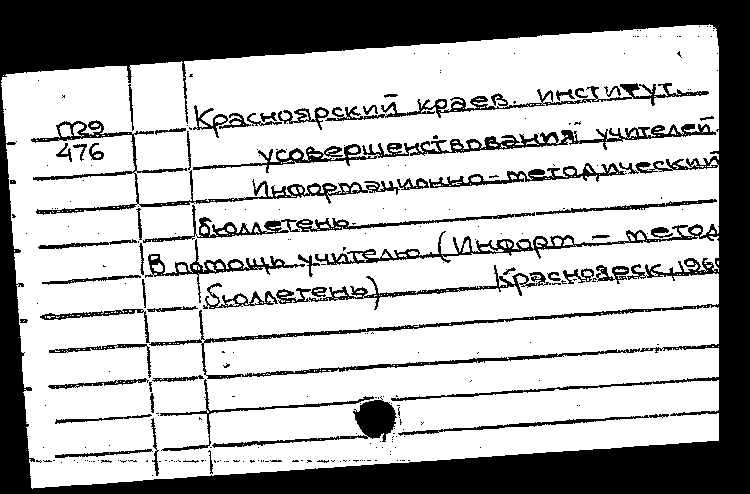 П29
476
Красноярский краев. институт
усовершенствования учителей.
Информационно-методический
бюллетень.
В помощь учителю (Информ. – метод
бюллетень) Красноярск,